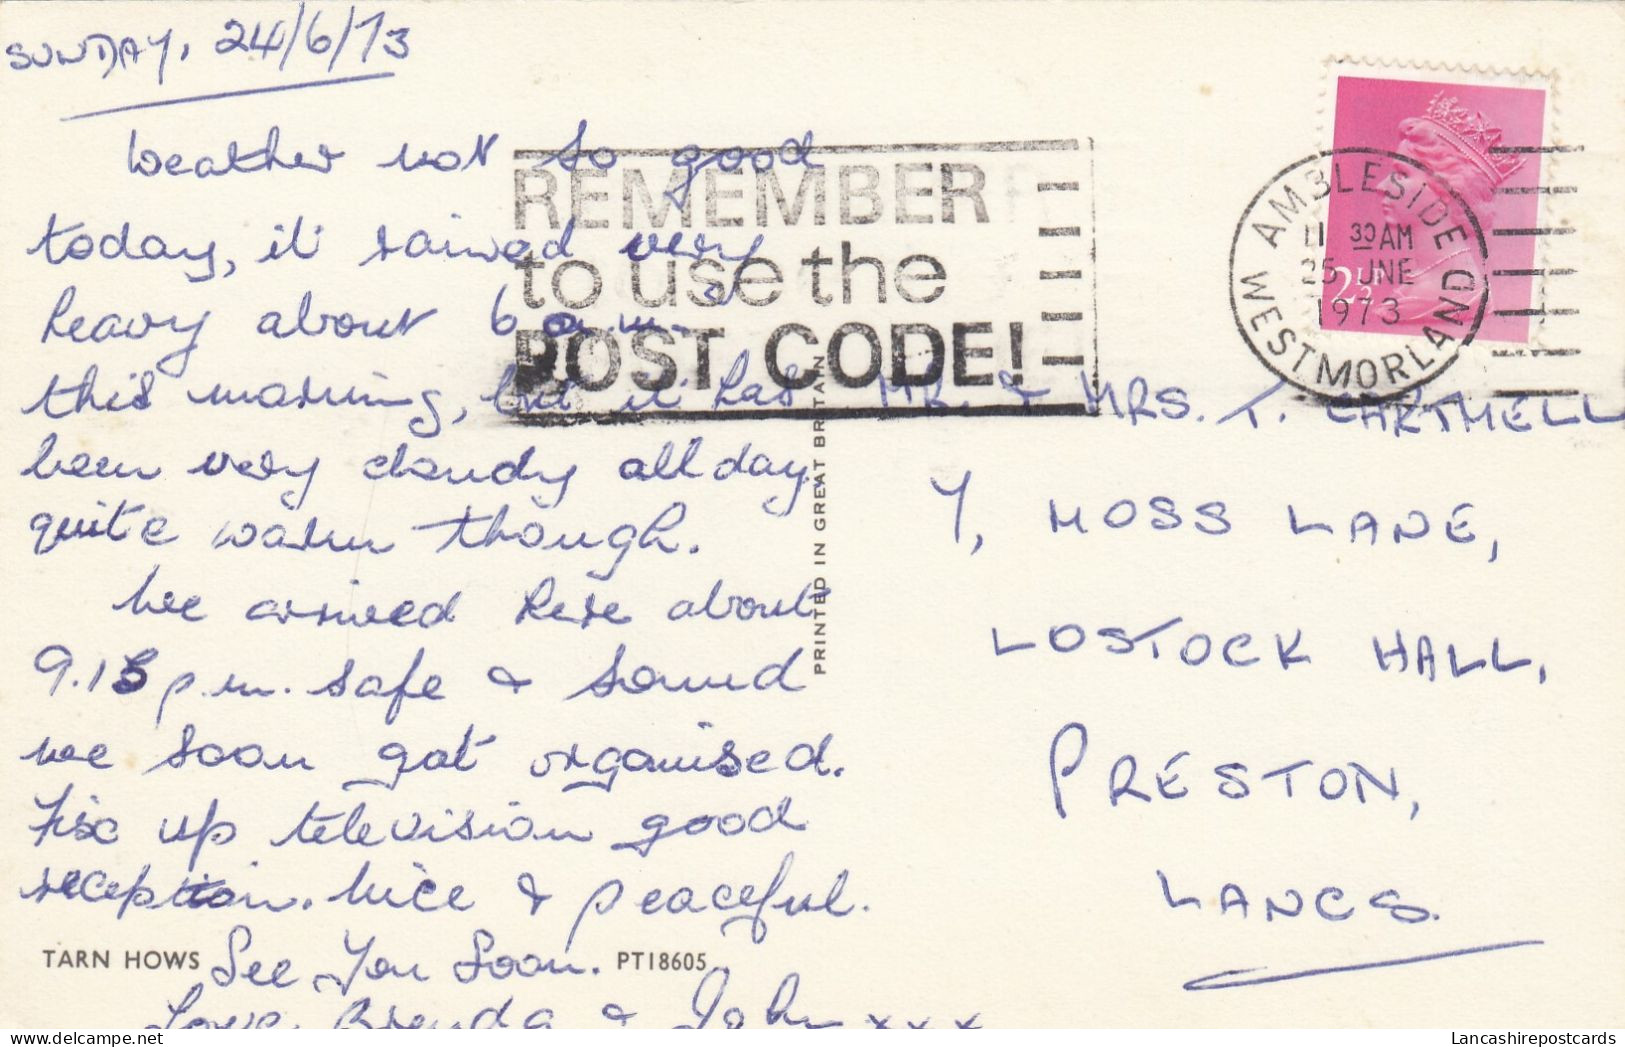 SUNDAY, 24/6/73
Weather not so good
today, it rained very
heavy about 6 a.m.
this morning, but it has
been very cloudy all day
quite warm though.
We arrived here about
9.15 p.m. safe & sound
we soon got organised.
Fix up television good
reception. Nice & peaceful.
See You Soon.
Love, Brenda & John xxx
TARN HOWS
PT18605
PRINTED IN GREAT BRITAIN
REMEMBER
to use the
POST CODE!
AMBLESIDE
11 30 AM
25 JNE
1973
WESTMORLAND
2½P
MR. & MRS. T. CARTMELL,
7, MOSS LANE,
LOSTOCK HALL,
PRESTON,
LANCS.
Lancashirepostcards